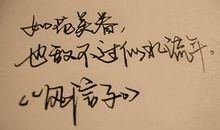 如花美眷，
也敌不过似水流年。
《网信子》